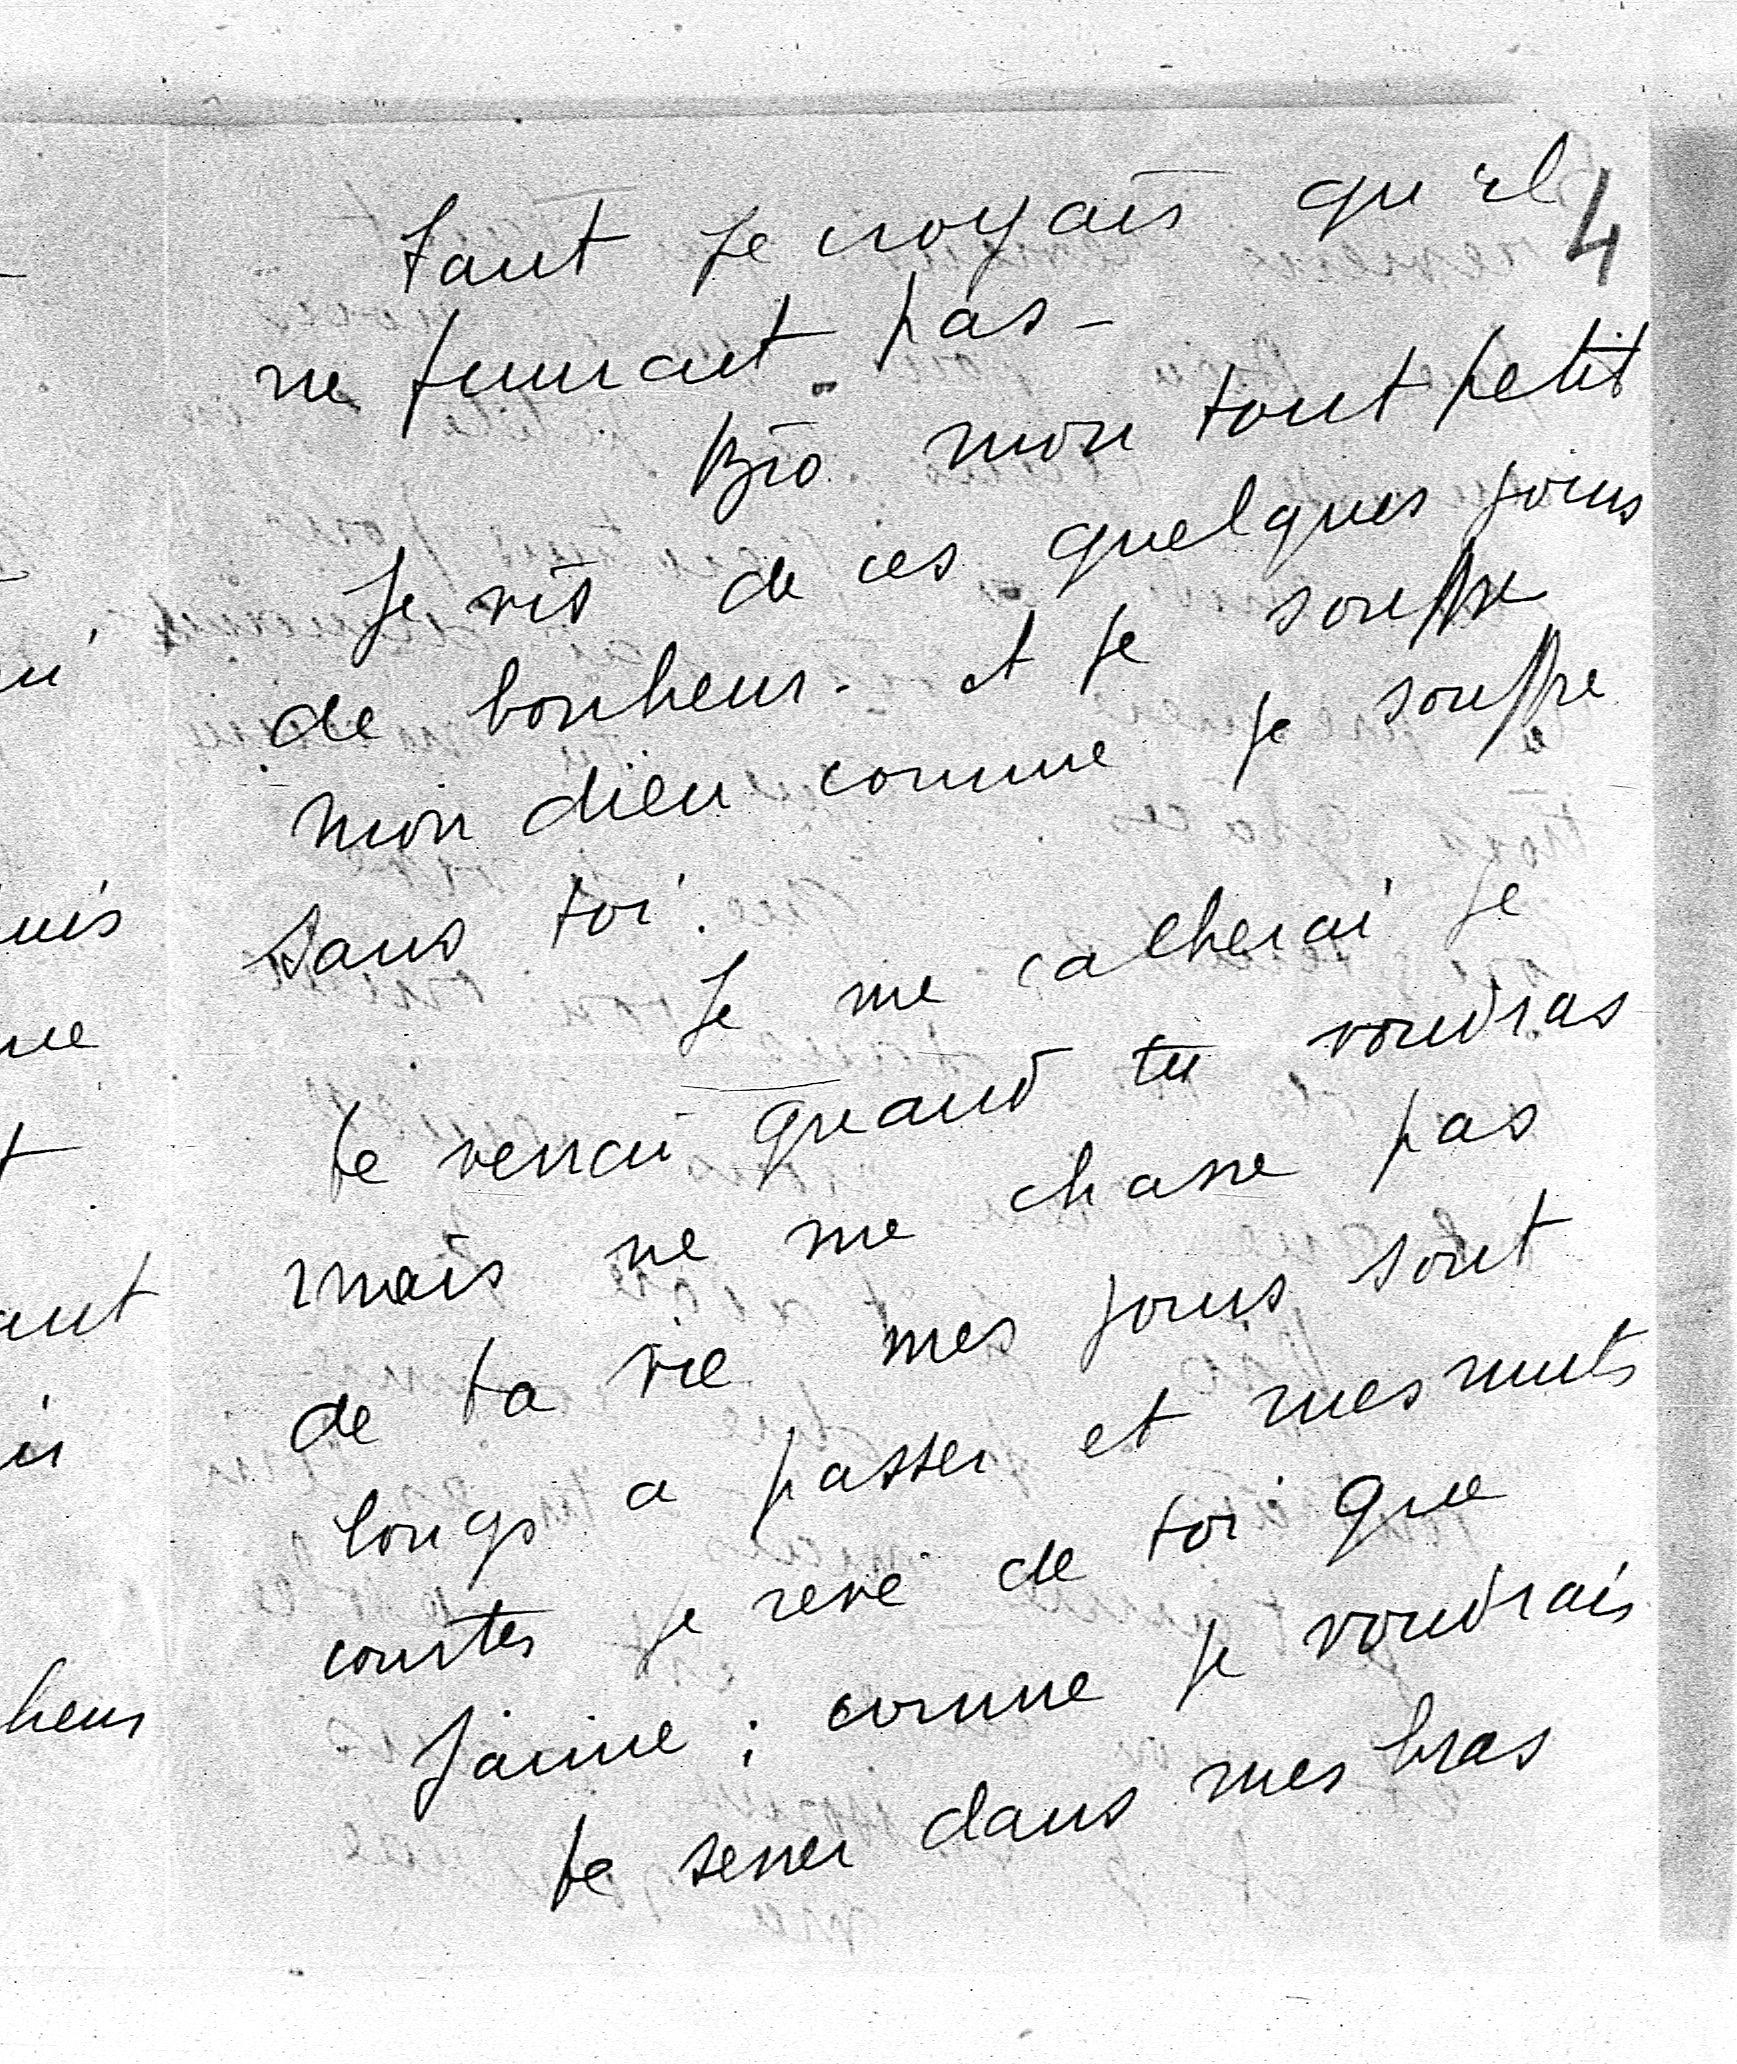 4
tant je croyais qu'il
ne fumait pas -
Bio mon tout petit
Je vis de ces quelques jours
de bonheur - et je souffre
mon dieu comme je souffre
sans toi.
Je me cacherai je
te verrai quand tu voudras
mais ne me chasse pas
de ta vie mes jours sont
longs a passer et mes nuits
courtes je reve de toi que
j'aime ; comme je voudrais
te serrer dans mes bras